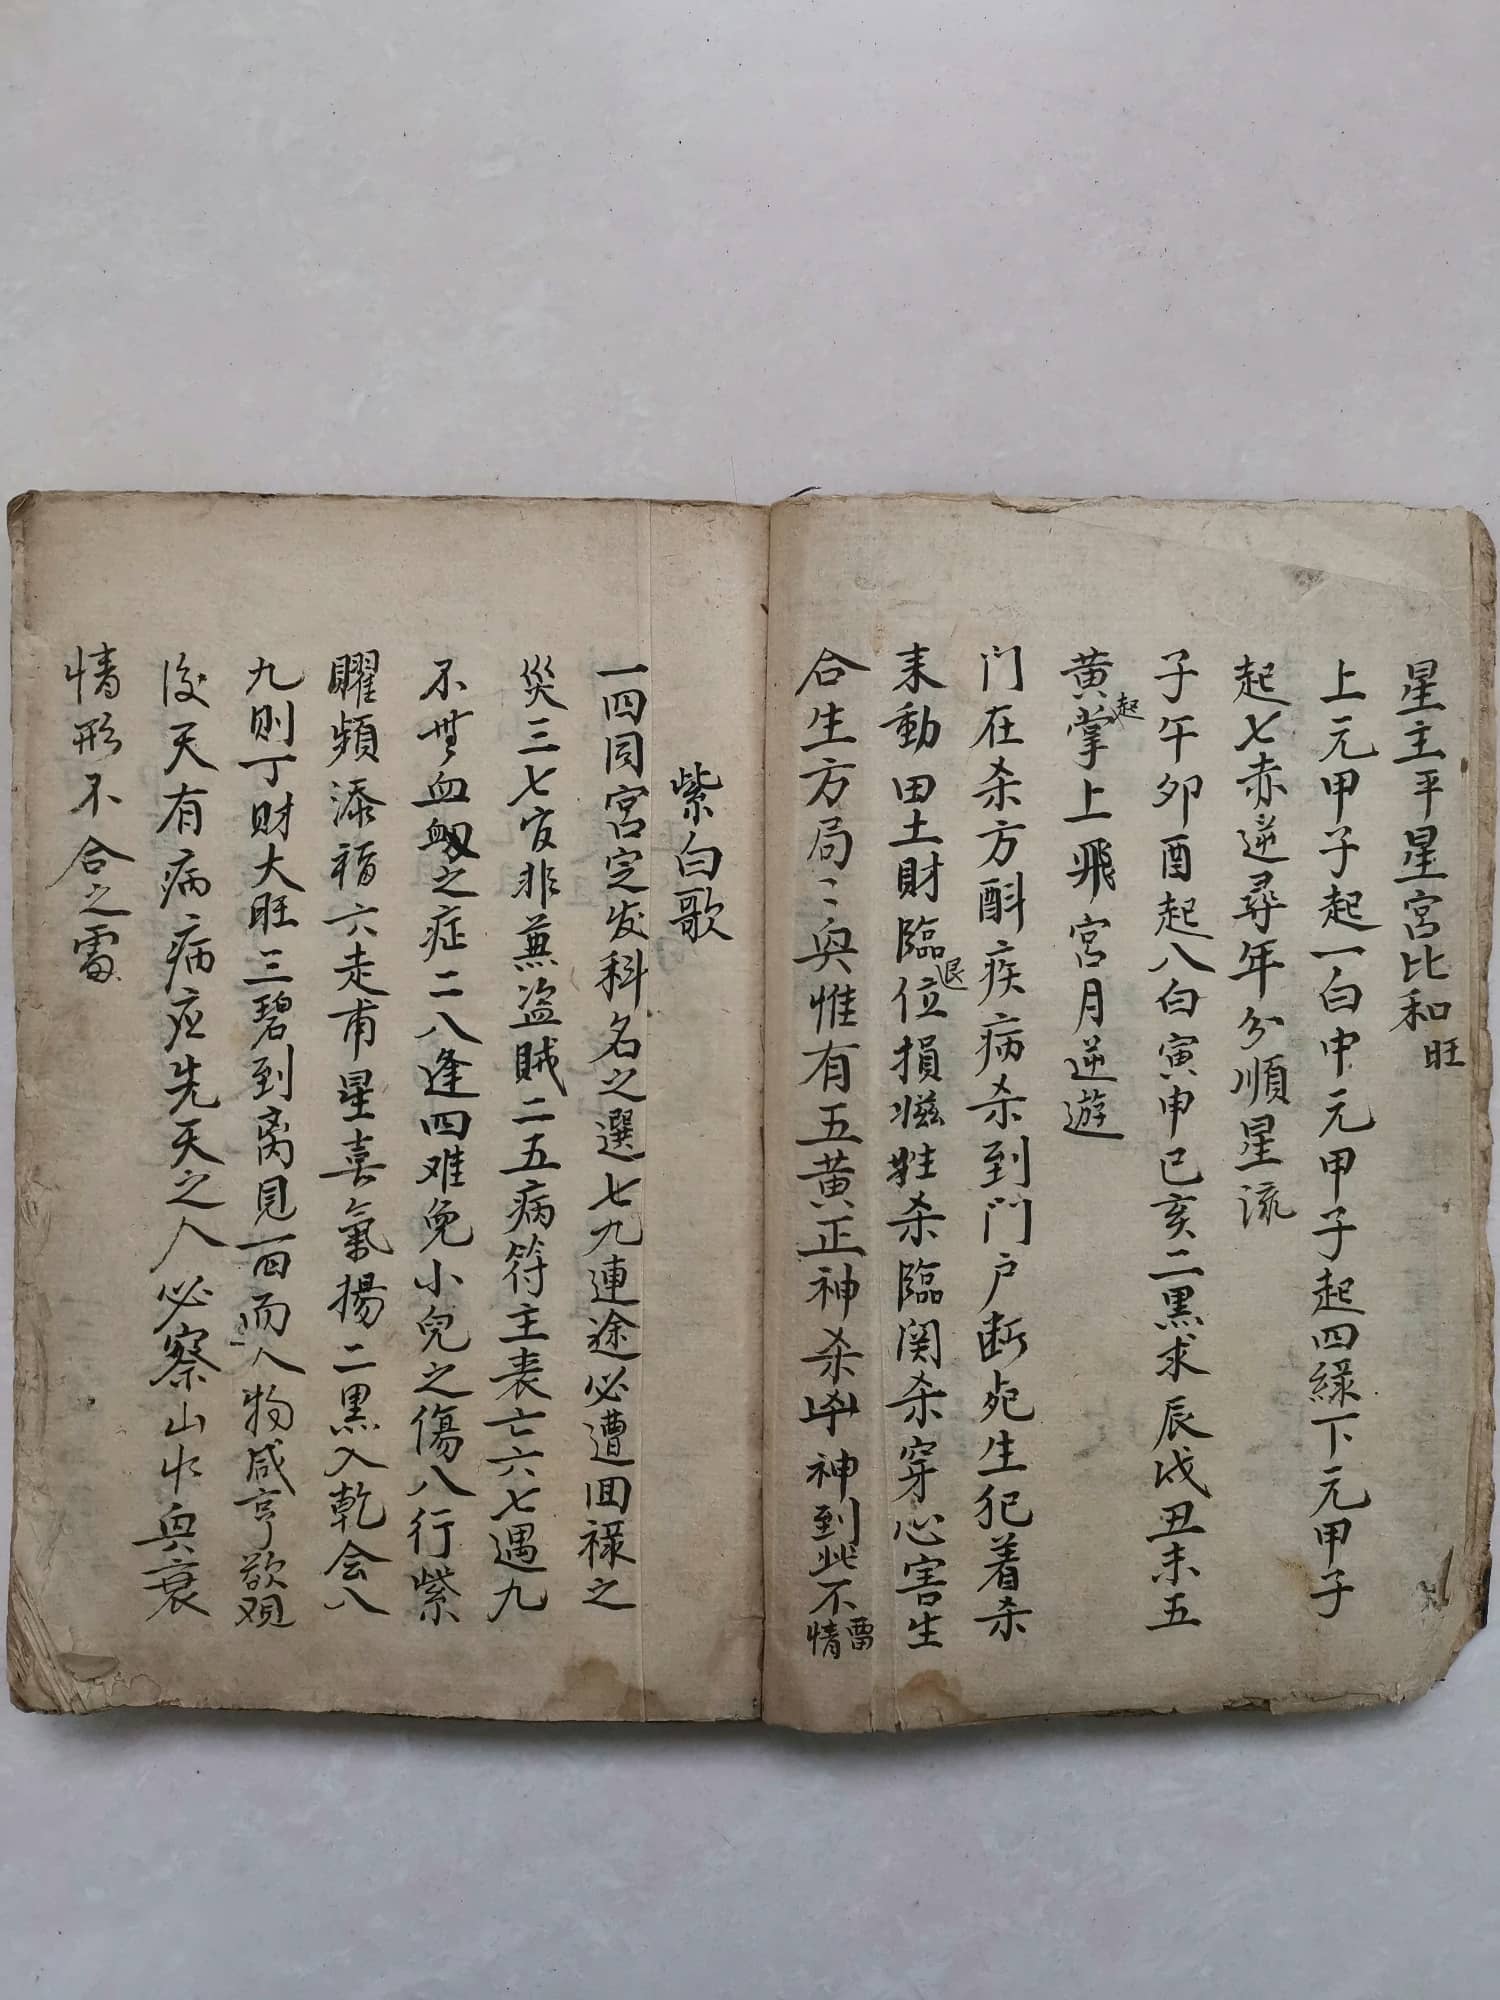 星主平星宮比和旺
上元甲子起一白中元甲子起四綠下元甲子
起七赤逆尋年分順星流
子午卯酉起八白寅申巳亥二黑求辰戌丑未五
黃起掌上飛宮月逆遊
门在杀方酙疾病杀到门户断死生犯着杀
耒動田土財臨退位損滋牲杀臨関杀穿心害生
合生方局〻與惟有五黄正神杀凶神到此不畱情
紫白歌
一四同宮定发科名之選七九連途必遭囬禄之
災三七官非蒹盗賊二五病符主丧亡六七遇九
不無血衂之症二八逢四难免小兒之傷八行紫
曜頻添福六走甫星喜氣揚二黑入乾会八
九則丁財大旺三碧到离見一四而人物咸亨欲观
後天有病病应先天之人必察山水興衰
情形不合之